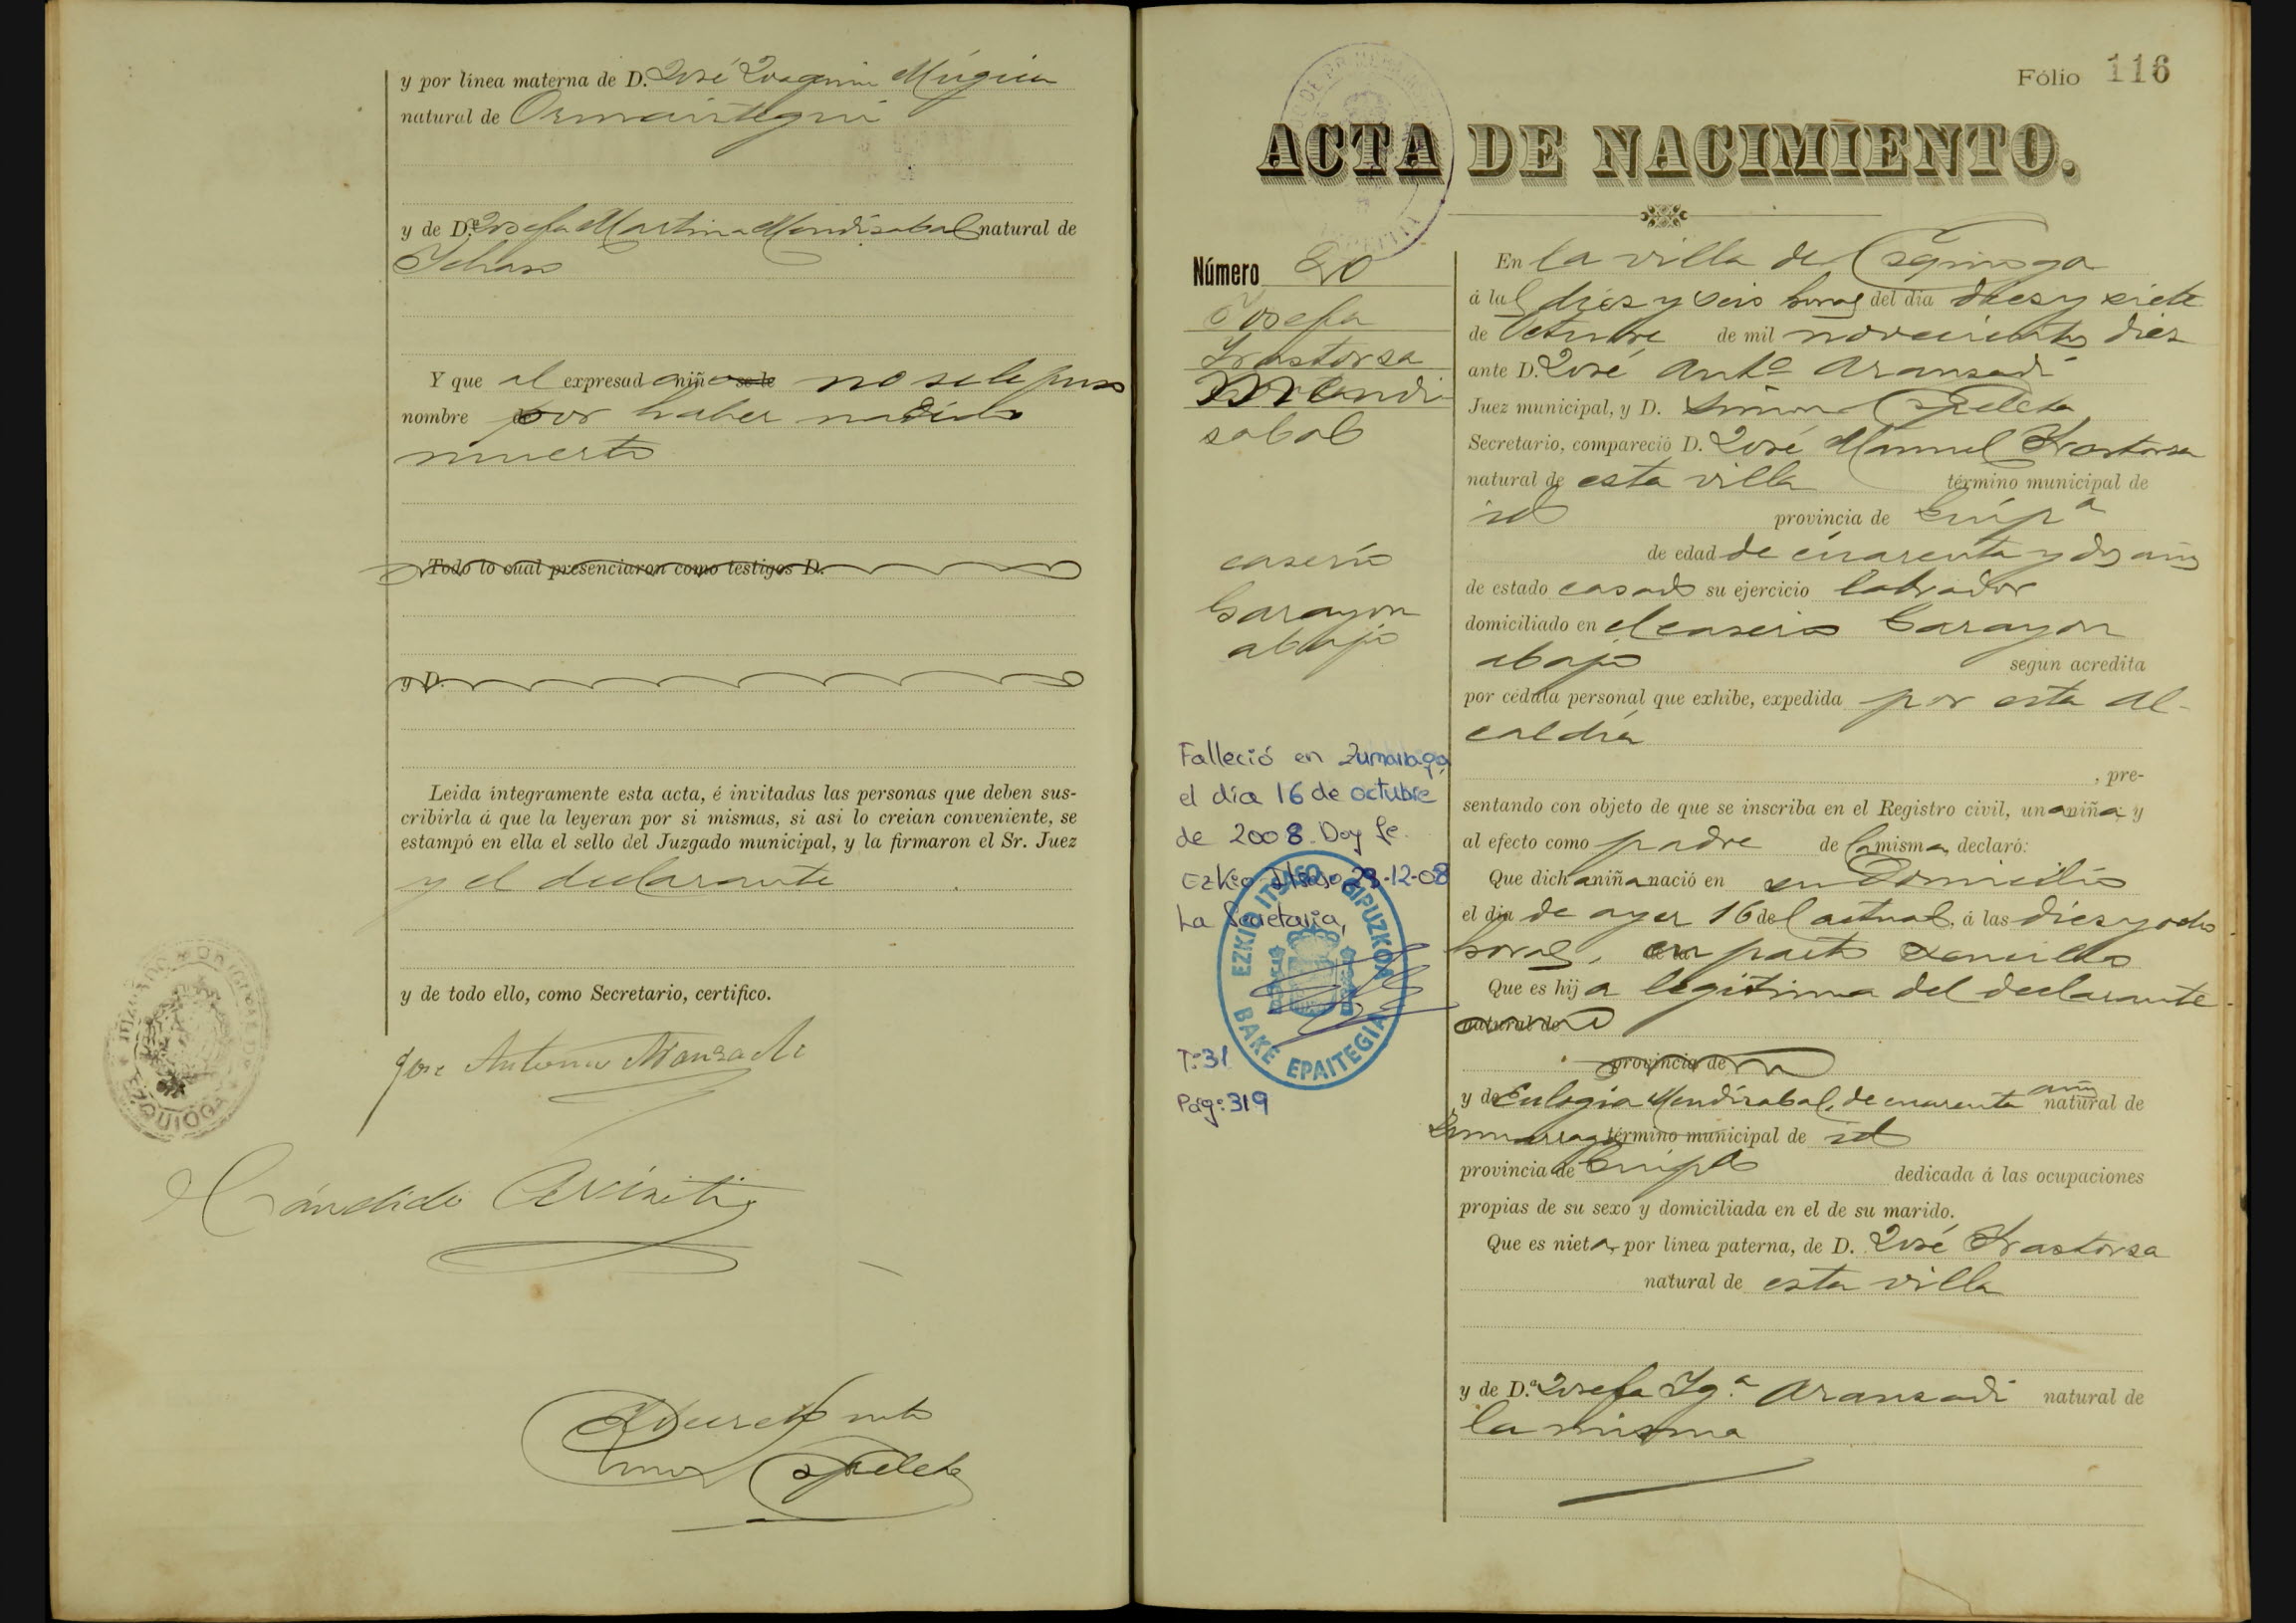 y por línea materna de D. José Joaquin Múgica
natural de Ormaiztegui
y de D.ª Josefa Martina Mendizabal natural de
Ichaso
Y que al expresado niño se le no se le puso
nombre por haber nacido
muerto
Todo lo cual presenciaron como testigos D.
y D.
Leida íntegramente esta acta, é invitadas las personas que deben sus-
cribirla á que la leyeran por sí mismas, si así lo creian conveniente, se
estampó en ella el sello del Juzgado municipal, y la firmaron el Sr. Juez
y el declarante
y de todo ello, como Secretario, certifico.
José Antonio Aranzadi
Cándido
Fólio 116
ACTA DE NACIMIENTO.
Número 20
Josefa
Irastorza
Mendi
zabal
caserío
Garayon
abajo
Falleció en Zumarraga,
el día 16 de octubre
de 2008. Doy fe.
Ezkio-Itsaso, 29-12-08
La Secretaria,
EZKIO ITSASO GIPUZKOA
BAKE EPAITEGIA
T: 31
Pág: 319
En la villa de Ezquioga
á las diez y seis horas del dia diez y siete
de Octubre de mil novecientos diez
ante D. José Antº Aranzadi
Juez municipal, y D. Simon Apeleta
Secretario, compareció D. José Manuel Irastorza
natural de esta villa término municipal de
id provincia de Guipª
de edad de cuarenta y dos años
de estado casado su ejercicio labrador
domiciliado en el caserio Garayon
abajo segun acredita
por cédula personal que exhibe, expedida por esta Al-
caldía
, pre-
sentando con objeto de que se inscriba en el Registro civil, una niña y
al efecto como padre de la misma, declaró:
Que dicha niña nació en su domicilio
el dia de ayer 16 del actual, á las diez y ocho
horas, en parto sencillo
Que es hija legitima del declarante
natural de
provincia de
y de Eulogia Mendizabal, de cuarenta años natural de
Zumarraga término municipal de id
provincia de Guipª dedicada á las ocupaciones
propias de su sexo y domiciliada en el de su marido.
Que es nieta, por línea paterna, de D. José Irastorza
natural de esta villa
y de D.ª Josefa Igª Aranzadi natural de
la misma